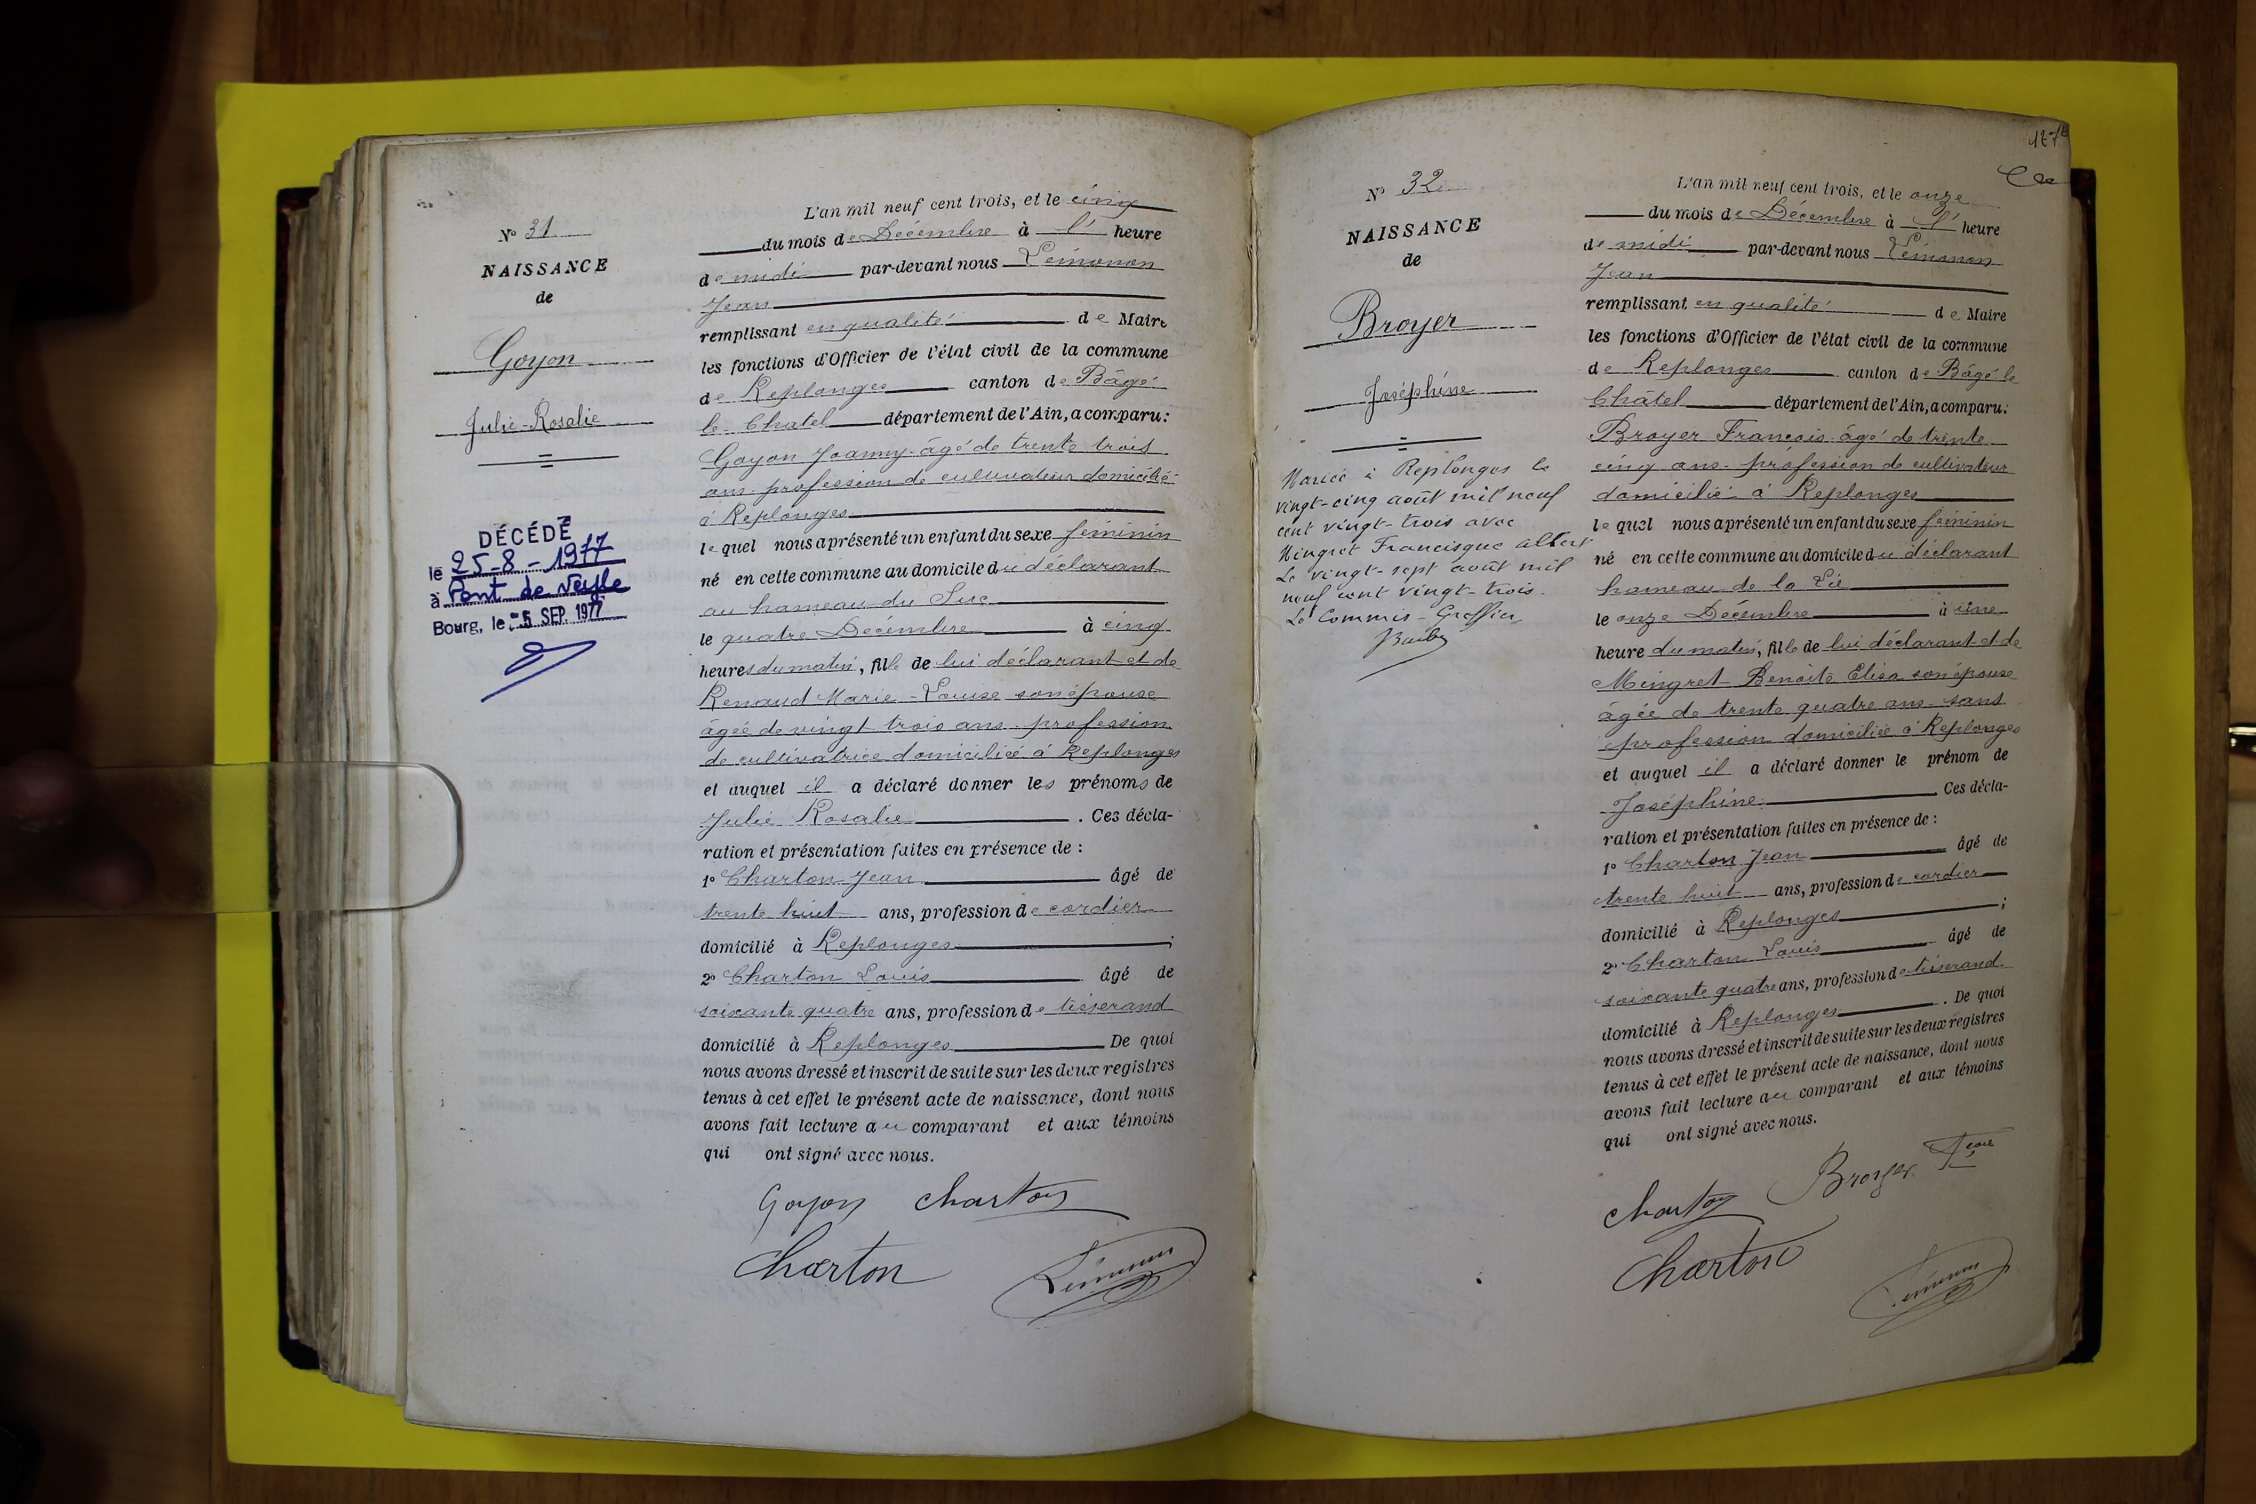 N° 31
NAISSANCE
de
Goyon
Julie-Rosalie
DÉCÉDÉ
le 25-8-1977
à Pont de Veyle
Bourg, le -5 SEP. 1977
L'an mil neuf cent trois, et le cinq
du mois de Décembre à l' heure
de midi par-devant nous Lémonon
Jean
remplissant en qualité de Maire
les fonctions d'Officier de l'état civil de la commune
de Replonges canton de Bâgé
le Chatel département de l'Ain, a comparu:
Goyon Joanny âgé de trente trois
ans profession de cultivateur domicilié
à Replonges
lequel nous a présenté un enfant du sexe féminin
né en cette commune au domicile du déclarant
au hameau du Suc
le quatre Décembre à cinq
heures du matin, fille de lui déclarant et de
Renaud Marie-Louise son épouse
âgée de vingt trois ans profession
de cultivatrice domiciliée à Replonges
et auquel il a déclaré donner les prénoms de
Julie Rosalie . Ces décla-
ration et présentation faites en présence de :
1° Charton Jean âgé de
trente huit ans, profession de cordier
domicilié à Replonges ;
2° Charton Louis âgé de
soixante quatre ans, profession de tisserand
domicilié à Replonges De quoi
nous avons dressé et inscrit de suite sur les deux registres
tenus à cet effet le présent acte de naissance, dont nous
avons fait lecture au comparant et aux témoins
qui ont signé avec nous.
Goyon Charton
Charton Lémonon
127
N° 32
NAISSANCE
de
Broyer
Joséphine
Mariée à Replonges le
vingt-cinq août mil neuf
cent vingt-trois avec
Mingret Francisque Albert
Le vingt-sept août mil
neuf cent vingt-trois.
Le Commis-Greffier
L'an mil neuf cent trois, et le onze
du mois de Décembre à l' heure
de midi par-devant nous Lémonon
Jean
remplissant en qualité de Maire
les fonctions d'Officier de l'état civil de la commune
de Replonges canton de Bâgé le
Châtel département de l'Ain, a comparu:
Broyer François âgé de trente
cinq ans profession de cultivateur
domicilié à Replonges
lequel nous a présenté un enfant du sexe féminin
né en cette commune au domicile du déclarant
hameau de la
le onze Décembre à une
heure du matin, fille de lui déclarant et de
Mingret Benoîte Elisa son épouse
âgée de trente quatre ans sans
profession domiciliée à Replonges
et auquel il a déclaré donner le prénom de
Joséphine Ces décla-
ration et présentation faites en présence de :
1° Charton Jean âgé de
trente huit ans, profession de cordier
domicilié à Replonges ;
2° Charton Louis âgé de
soixante quatre ans, profession de tisserand
domicilié à Replonges . De quoi
nous avons dressé et inscrit de suite sur les deux registres
tenus à cet effet le présent acte de naissance, dont nous
avons fait lecture au comparant et aux témoins
qui ont signé avec nous.
Charton Broyer
Charton Lémonon